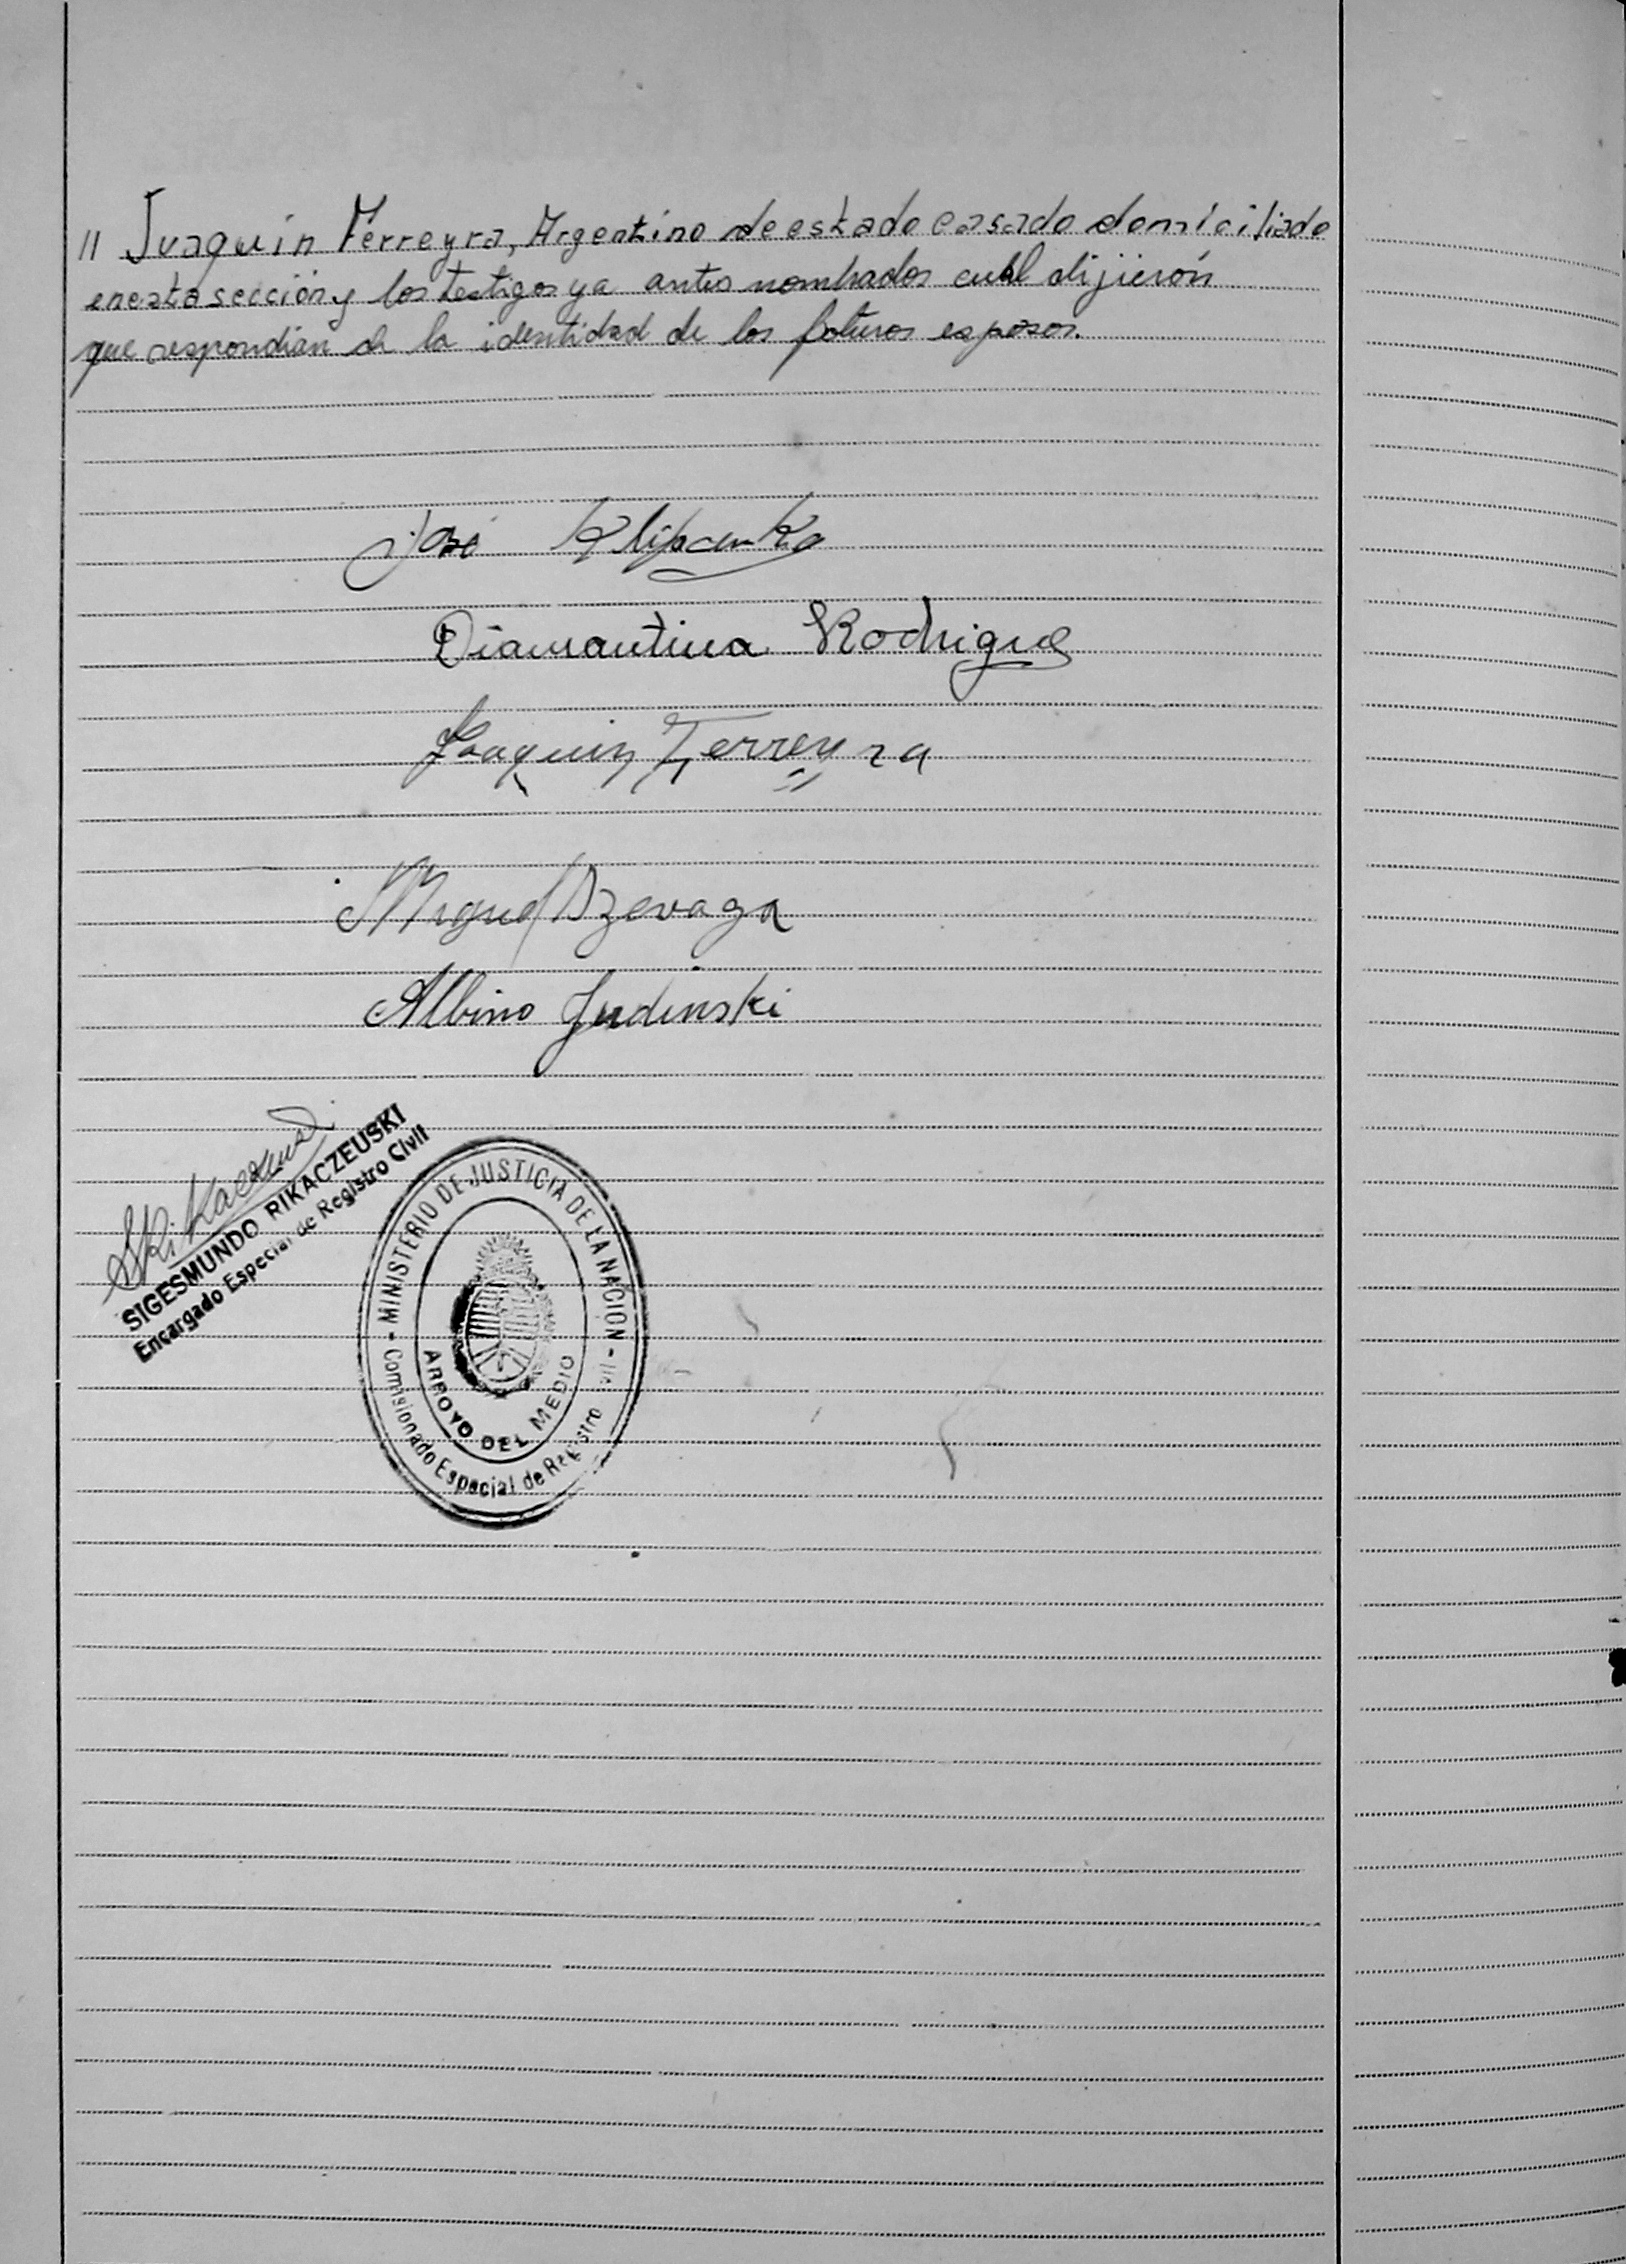 11 Juaquin Ferreyra, Argentino de estado casado domiciliado
en esta sección y los testigos ya antes nombrados cual dijierón
que respondian de la identidad de los futuros esposos.
José Klipcenko
Diamantina Rodrigue
Joaquin Ferreyra
Miguel Dzevaga
Albino Judinski
SRikaczeuski
SIGESMUNDO RIKACZEUSKI
Encargado Especial de Registro Civil
- MINISTERIO DE JUSTICIA DE LA NACION -
ARROYO DEL MEDIO
Comisionado Especial de Registro